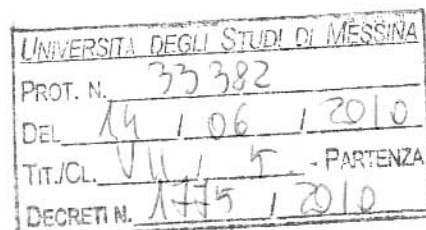 UNIVERSITÀ DEGLI STUDI DI MESSINA
PROT. N. 33382
DEL 14 / 06 / 2010
TIT./CL. VII / 5 - PARTENZA
DECRETI N. 1775 / 2010